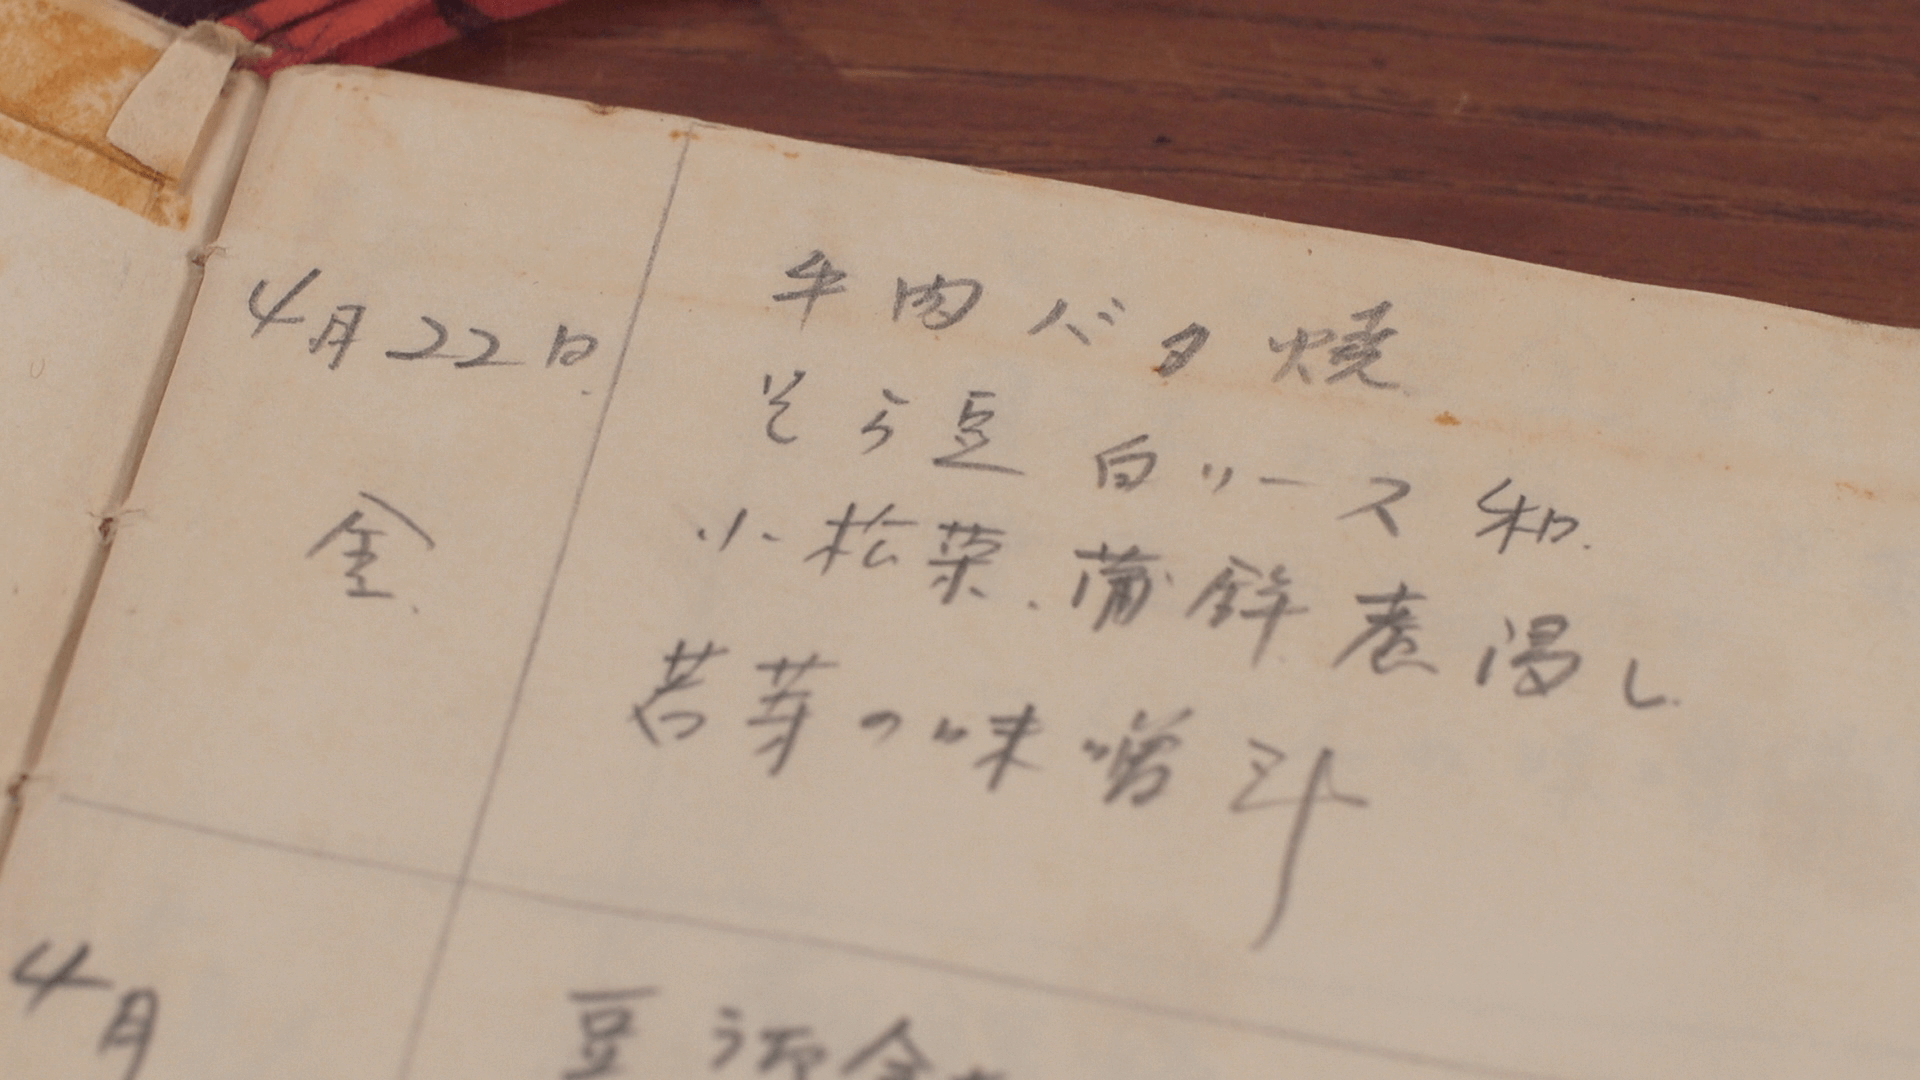 4月22日
金.
牛肉バタ焼
そら豆白ソース和.
小松菜.蒲鉾煮浸し
若芽の味噌汁
4月
豆御金